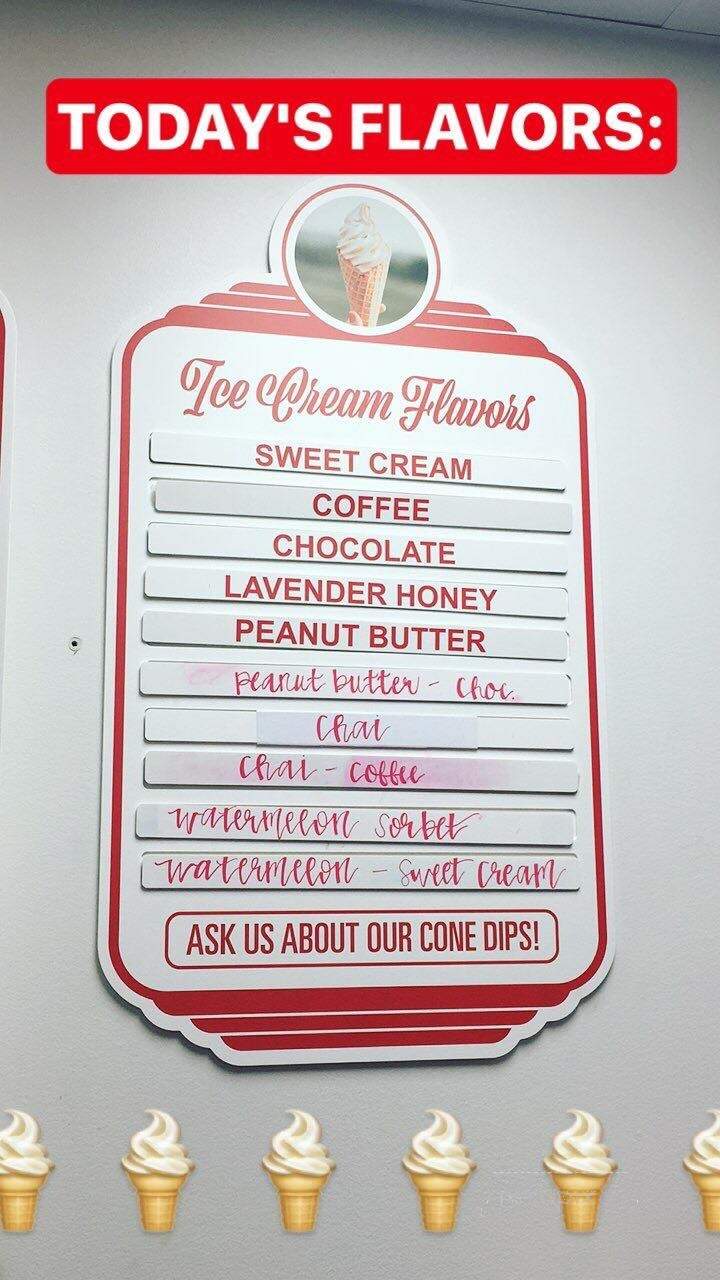 TODAY'S FLAVORS:
Ice Cream Flavors
SWEET CREAM
COFFEE
CHOCOLATE
LAVENDER HONEY
PEANUT BUTTER
peanut butter - choc.
chai
chai - coffee
watermelon sorbet
watermelon - sweet cream
ASK US ABOUT OUR CONE DIPS!